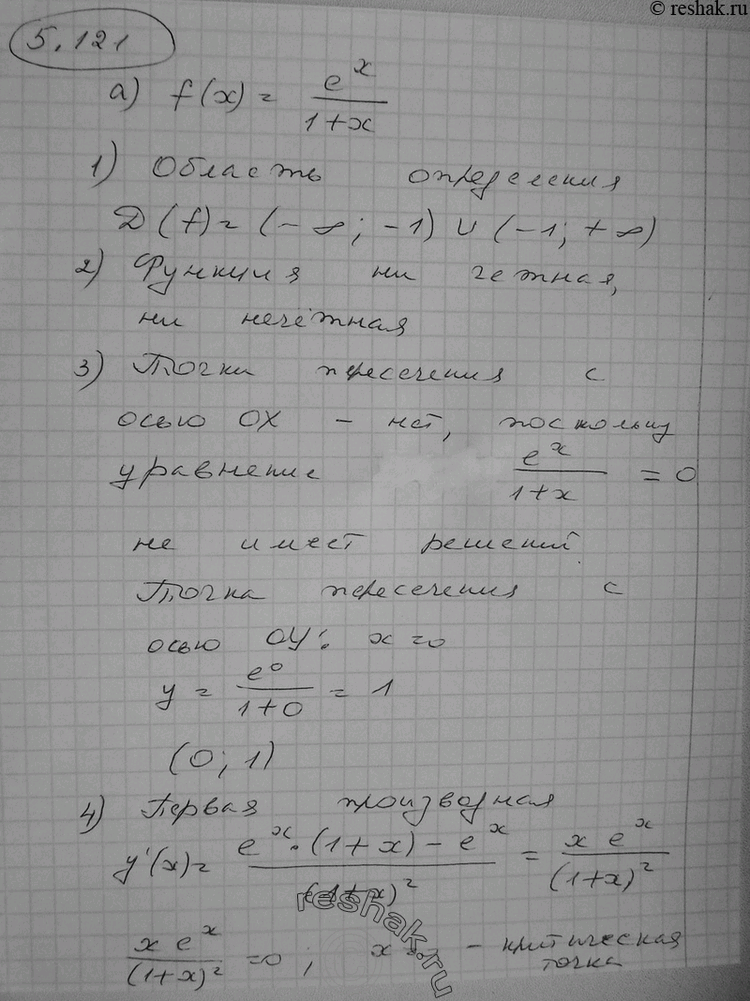 © reshak.ru
5.121
а) f(x) = e^x / (1+x)
1) Область определения
D(f) = (-∞; -1) ∪ (-1; +∞)
2) Функция ни четная,
ни нечётная
3) Точки пересечения с
осью OX - нет, поскольку
уравнение e^x / (1+x) = 0
не имеет решений.
Точка пересечения с
осью OY: x=0
y = e^0 / (1+0) = 1
(0; 1)
4) Первая производная
y'(x) = (e^x · (1+x) - e^x) / (1+x)^2 = x e^x / (1+x)^2
x e^x / (1+x)^2 = 0; x = - критическая
точка
reshak.ru